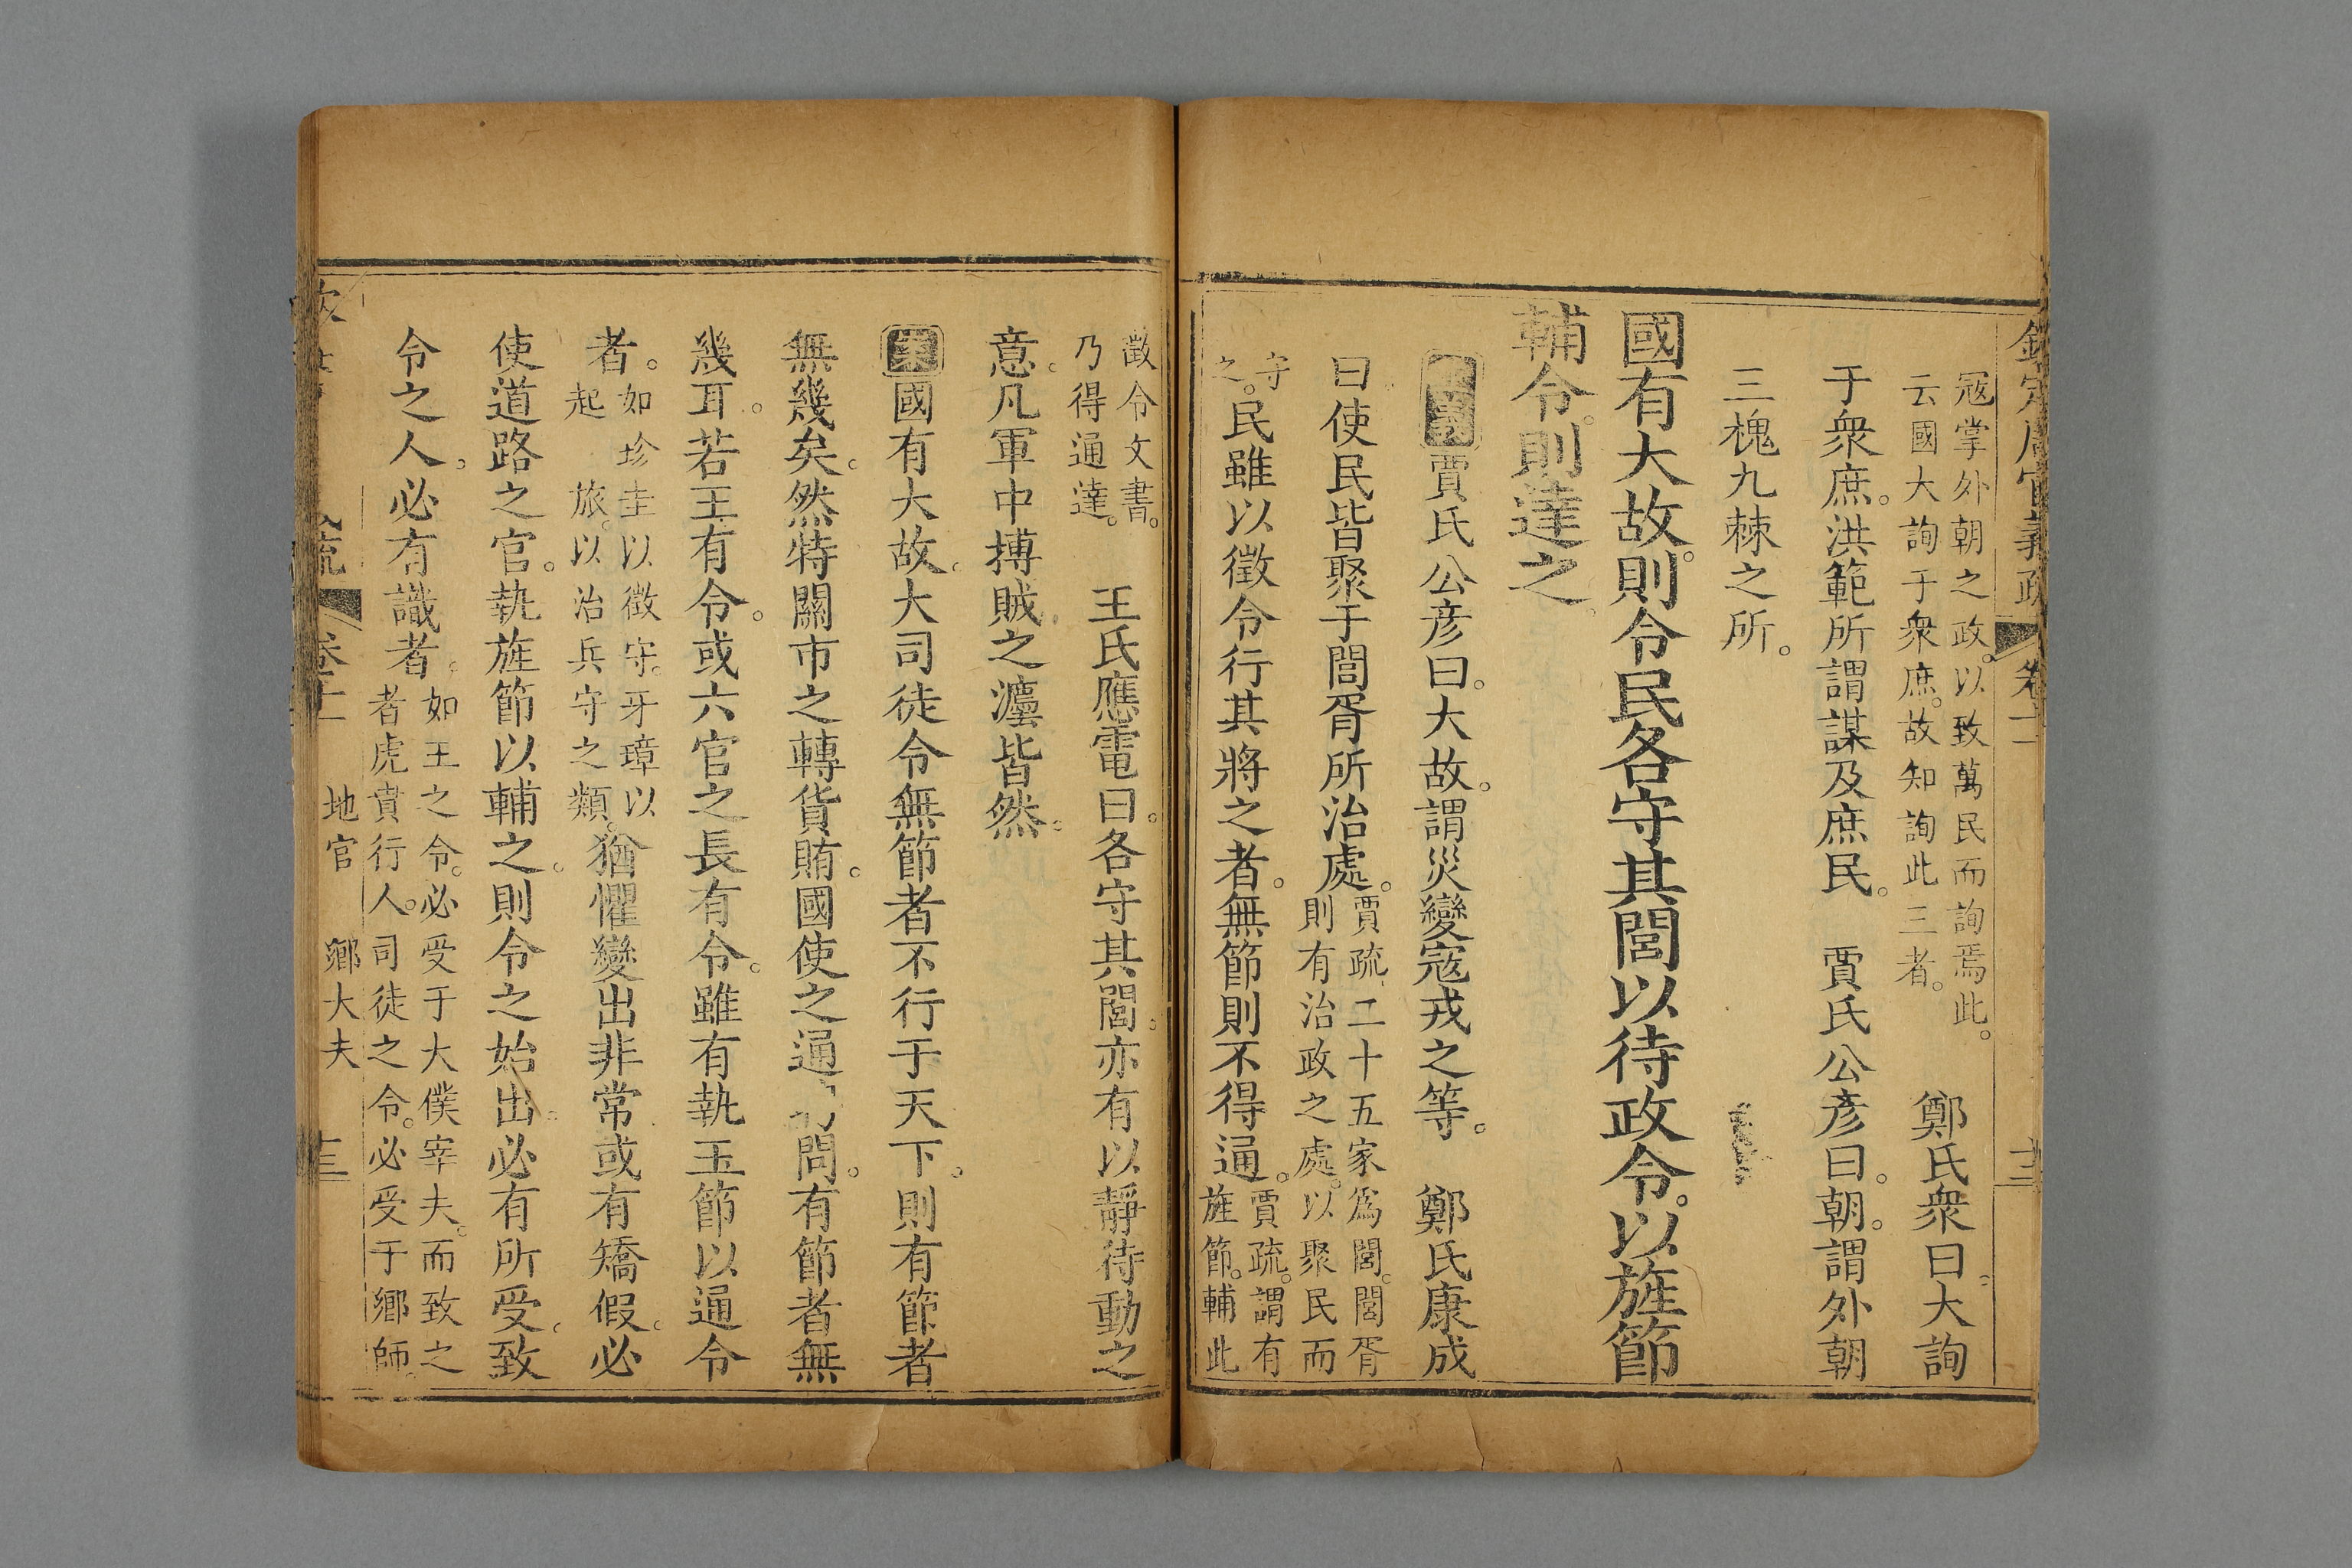 欽定周官義疏 卷十一
寇掌外朝之政。以致萬民而詢焉此。
云國大詢于衆庶。故知詢此三者。
鄭氏衆曰大詢
于衆庶。洪範所謂謀及庶民。 賈氏公彦曰。朝。謂外朝
三槐九棘之所。
國有大故。則令民各守其閭以待政令。以旌節
輔令。則達之。
賈氏公彦曰。大故。謂災變寇戎之等。 鄭氏康成
曰。使民皆聚于閭胥所治處。
賈疏。二十五家爲閭。閭胥
則有治政之處。以聚民而
守
之。
民雖以徵令行其將之者。無節則不得通。
賈疏。謂有
旌節。輔此
徵令文書。
乃得通達。
王氏應電曰。各守其閭。亦有以靜待動之
意。凡軍中搏賊之灋皆然。
案國有大故。大司徒令無節者不行于天下。則有節者
無幾矣。然特關市之轉貨賄。國使之通問。有節者無
幾耳。若王有令。或六官之長有令。雖有執玉節以通令
者。
如珍圭以徵守。牙璋以
起 旅。以治兵守之類。
猶懼變出非常或有矯假。必
使道路之官。執旌節以輔之。則令之始出。必有所受。致
令之人。必有識者。
如王之令。必受于大僕宰夫。而致之
者虎賁行人。司徒之令。必受于鄉師。
卷十一 地官 鄉大夫